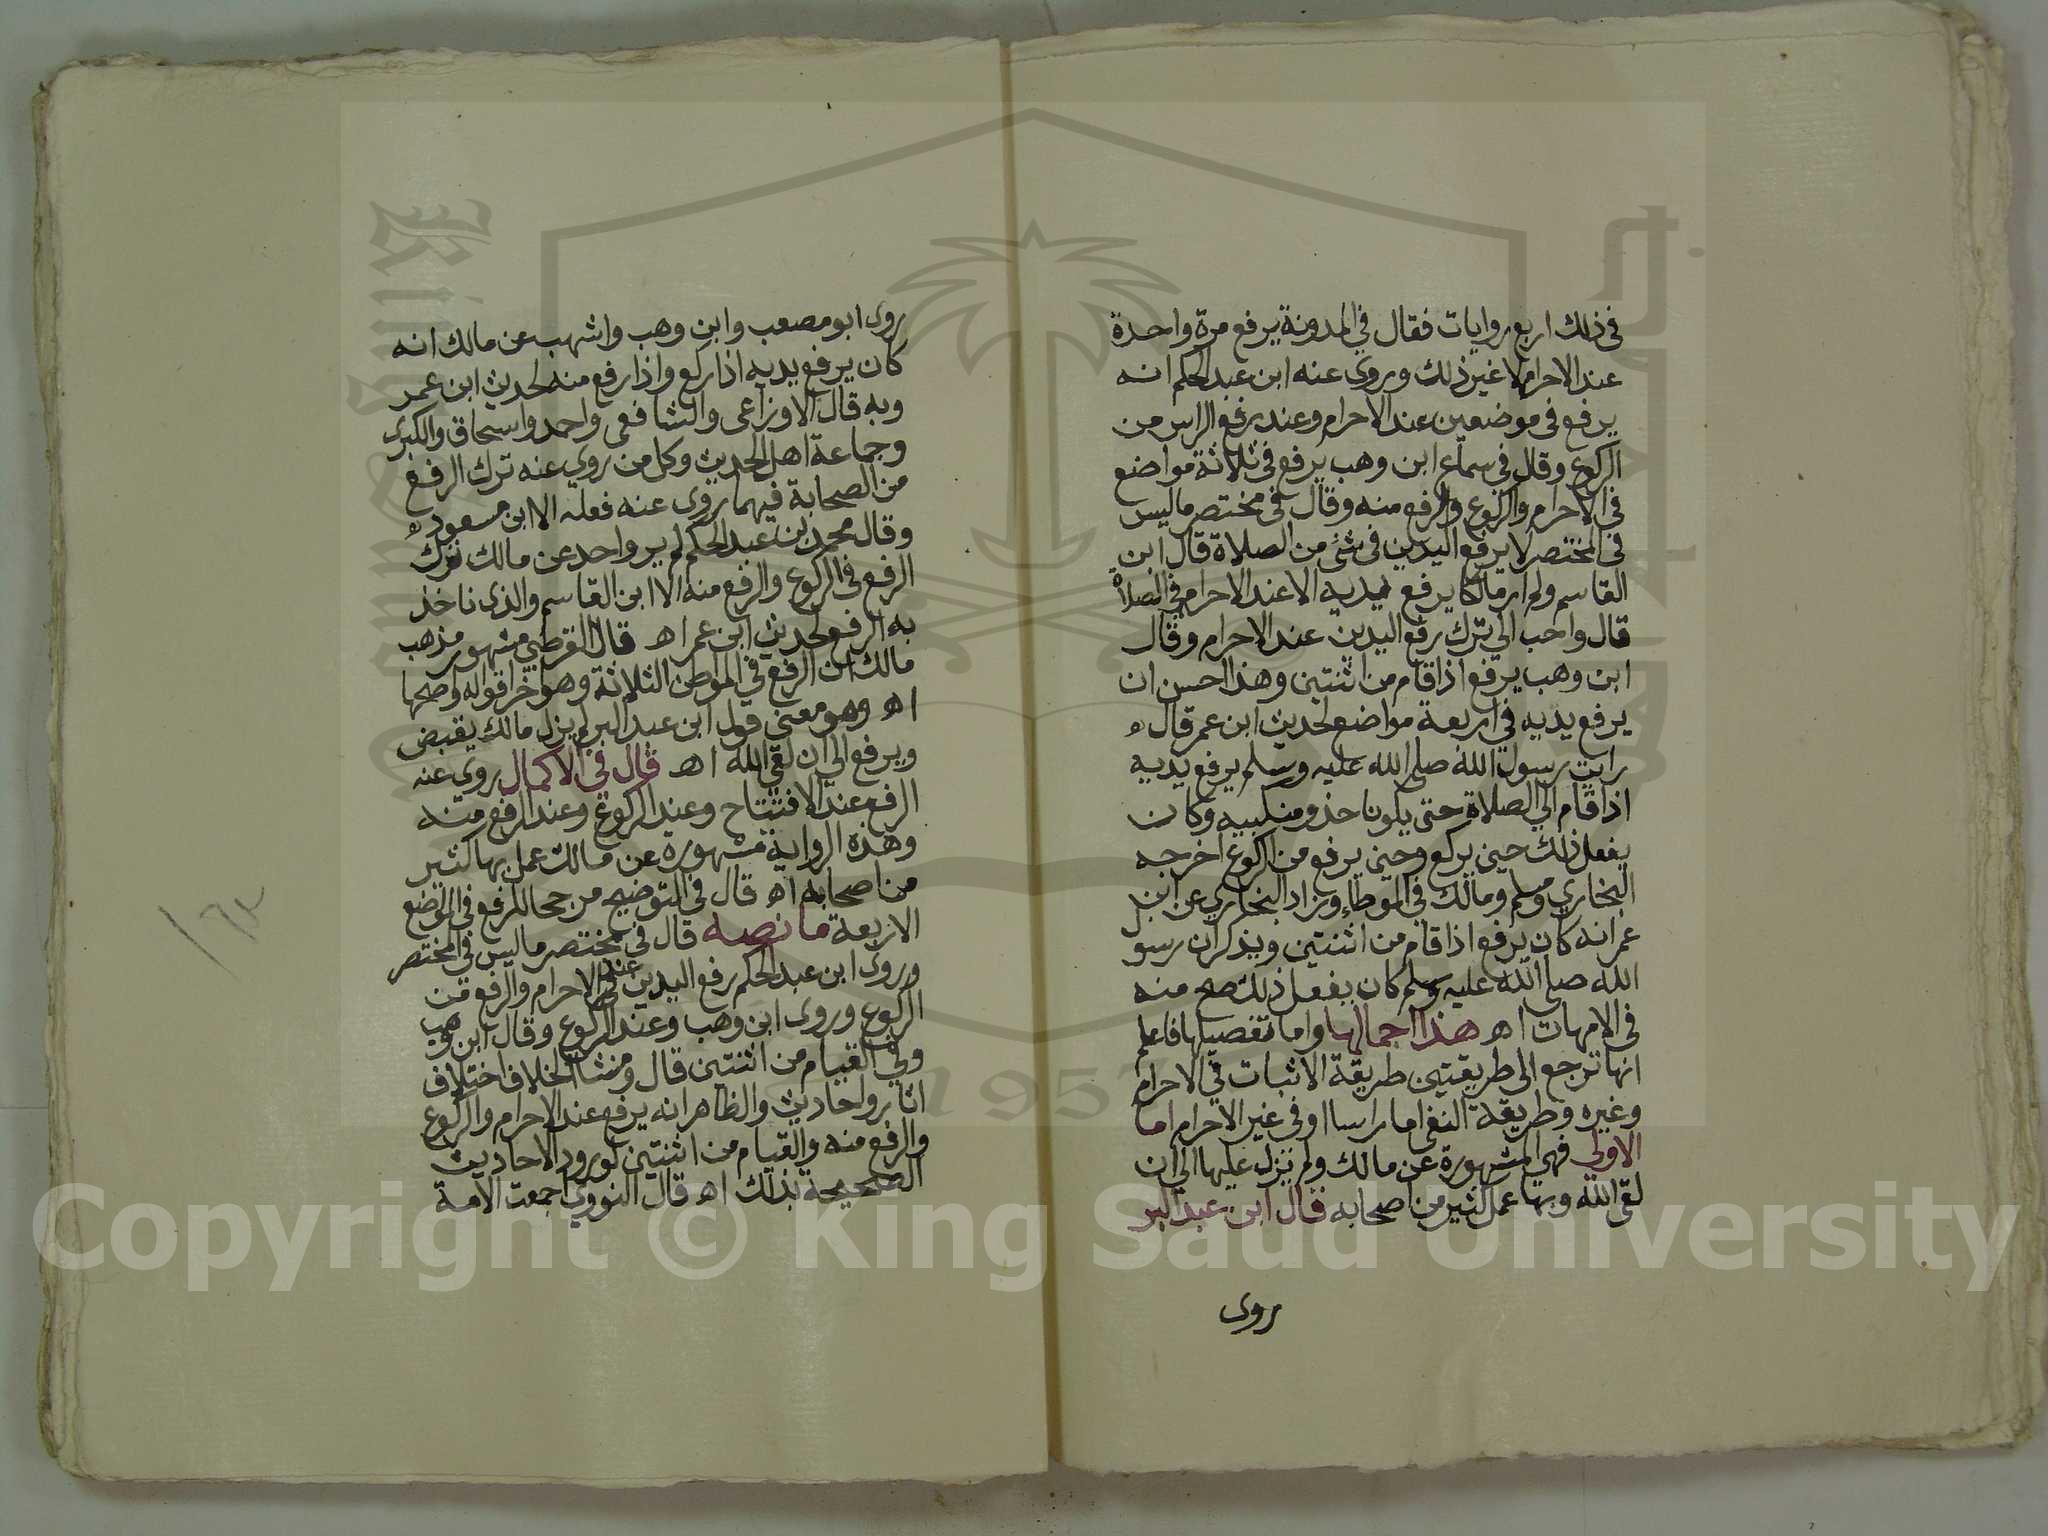 في ذلك اربع روايات فقال في المدونة يرفع مرة واحدة
عند الاحرام لا غير ذلك وروى عنه ابن عبد الحكم انه
يرفع في موضعين عند الاحرام وعند رفع الراس من
الركوع وقال في سماع ابن وهب يرفع في ثلاثة مواضع
في الاحرام والركوع والرفع منه وقال في مختصر ما ليس
في المختصر لا يرفع اليدين في شئ من الصلاة قال ابن
القاسم ولم ار مالكا يرفع يديه الا عند الاحرام في الصلاة
قال واحب الي ترك رفع اليدين عند الاحرام وقال
ابن وهب يرفع اذا قام من اثنتين وهذا احسن ان
يرفع يديه في اربعة مواضع لحديث ابن عمر قال
رايت رسول الله صلى الله عليه وسلم يرفع يديه
اذا قام الي الصلاة حتى يكونا حذو منكبيه وكان
يفعل ذلك حين يركع وحين يرفع من الركوع اخرجه
البخاري ومسلم ومالك في الموطاء وزاد البخاري عن ابن
عمر انه كان يرفع اذا قام من اثنتين ويذكر ان رسول
الله صلى الله عليه وسلم كان يفعل ذلك صح منه
في الامهات اه هذا اجمالها واما تفصيلها فاعلم
انها ترجع الى طريقتين طريقة الاثبات في الاحرام
وغيره وطريقة النفي اما راسا او في غير الاحرام اما
الاولي فهي المشهورة عن مالك ولم يزل عليها الي ان
لقي الله وبها عمل كثير من اصحابه قال ابن عبد البر
روى
روى ابو مصعب وابن وهب واشهب عن مالك انه
كان يرفع يديه اذا ركع واذا رفع منه لحديث ابن عمر
وبه قال الاوزاعى والشافعى واحمد واسحاق والكبرى
وجماعة اهل الحديث وكل من روي عنه ترك الرفع
من الصحابة فيهما روى عنه فعله الا ابن مسعود
وقال محمد بن عبد الحكم لم يرو احد عن مالك ترك
الرفع في الركوع والرفع منه الا ابن القاسم والذى ناخذ
به الرفع لحديث ابن عمر اه قال القرطبي مشهور مذهب
مالك ان الرفع في المواطن الثلاثة وهو اخر اقواله واصحها
اه وهو معنى قول ابن عبد البر لم يزل مالك يقبض
ويرفع الي ان لقي الله اه قال في الاكمال روى عنه
الرفع عند الافتتاح وعند الركوع وعند الرفع منه
وهذه الرواية مشهورة عن مالك عمل بها كثير
من اصحابه اه قال في التوضيح مرجحا للرفع في المواضع
الاربعة ما نصه قال في مختصر ما ليس في المختصر
وروى ابن عبد الحكم رفع اليدين عند الاحرام والرفع من
الركوع وروى ابن وهب وعند الركوع وقال ابن وهب
وفي القيام من اثنتين قال ومنشا الخلاف اختلاف
اثار واحاديث والظاهر انه يرفع عند الاحرام والركوع
والرفع منه والقيام من اثنتين لورود الاحاديث
الصحيحة بذلك اه قال النووي اجمعت الامة
Copyright © King Saud University
1957